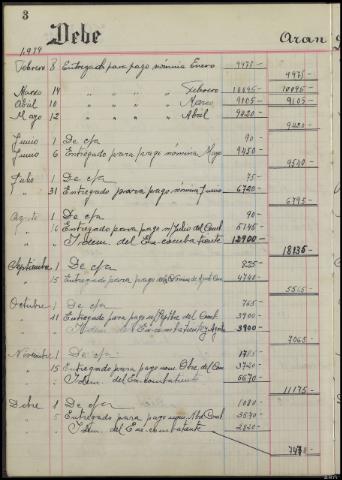 3
Debe Aran
1.979
Febrero 8 Entregado para pago nómina Enero 9975-
9975-
Marzo 14 " " " " Febrero 10095- 10095-
Abril 10 " " " " Marzo 9105- 9105-
Mayo 12 " " " " Abril 9420-
9420-
Junio 1 De c/a 90-
Junio 6 Entregado para pago nómina Mayo 9450-
9540-
Julio 1 De c/a 75-
" 31 Entregado para pago nómina Junio 6720-
6795-
Agosto 1 De c/a 90-
" 16 Entregado para pago n/ Julio del Comb 5145-
" " Idem. del Ex-combatiente 12900-
18135-
Septiembre 1 De c/a 825-
" 15 Entregado para pago Nómina de Agosto Com 4740-
5565-
Octubre 1 De c/a 765-
" 11 Entregado para pago n/ Septbre del Comb 3900-
Ex-combatiente y Agosto 3900-
7065-
Noviembre 1 De c/a 1785-
" 15 Entregado para pago nom. Obre. del Com 3720-
" " Idem. del Ex-combatiente 5670-
11175-
Dcbre 1 De c/a 1080-
" Entregado para pago nom. Nbre Comb 3570-
Idem. del Exc-combatiente 2820-
7470-